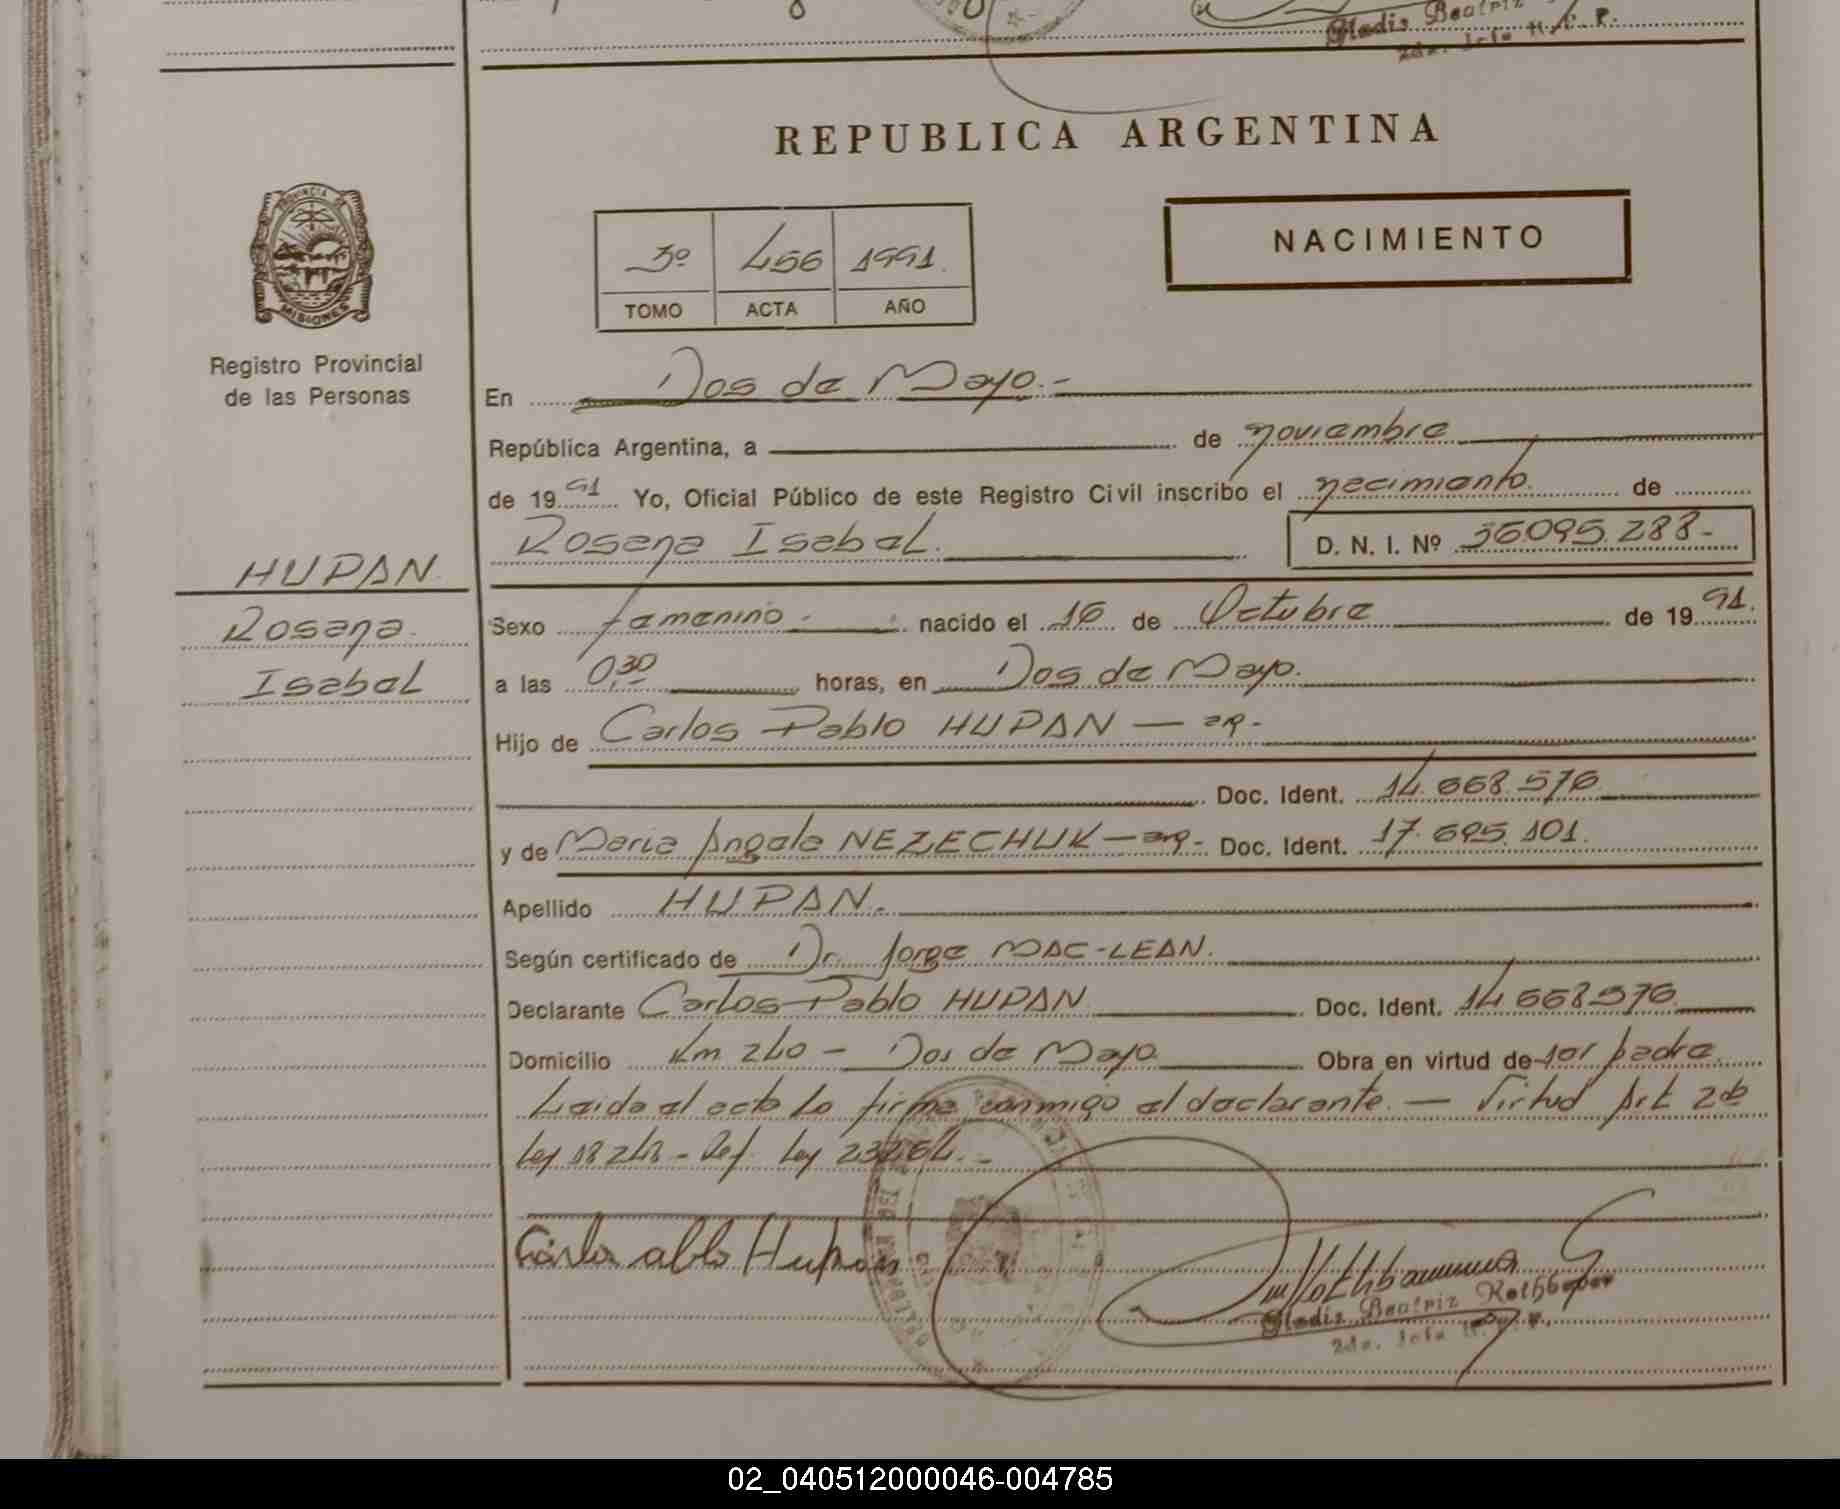 Gladis Beatriz
2da. Jefa R. P.
REPUBLICA ARGENTINA
PROVINCIA DE
MISIONES
Registro Provincial
de las Personas
3º 456 1991.
TOMO ACTA AÑO
NACIMIENTO
En Dos de Mayo.-
República Argentina, a de noviembre
de 1991 Yo, Oficial Público de este Registro Civil inscribo el nacimiento. de
Rosana Isabel. D. N. I. Nº 36095.288-
HUPAN.
Rosana.
Isabel
Sexo femenino. nacido el 16 de Octubre de 1991.
a las 0,30 horas, en Dos de Mayo.
Hijo de Carlos Pablo HUPAN — ar.-
Doc. Ident. 14.668.576
y de Maria Angela NEZECHUK — ar.- Doc. Ident. 17.695.101.
Apellido HUPAN.
Según certificado de Dr. Jorge MAC-LEAN.
Declarante Carlos Pablo HUPAN Doc. Ident. 14.668576
Domicilio Km 240 - Dos de Mayo Obra en virtud de ser padre.
Leida el acta lo firma conmigo el declarante. — Virtud Art 2do
Ley 18248 - Ref. Ley 23264.-
Carlo ablo Hupan
Gladis Beatriz Rothbauer
2da. Jefa R. P.
02_040512000046-004785